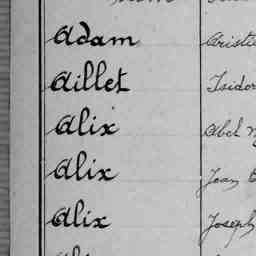 Adam
Aillet Isidor
Alix Abel
Alix Jean
Alix Joseph